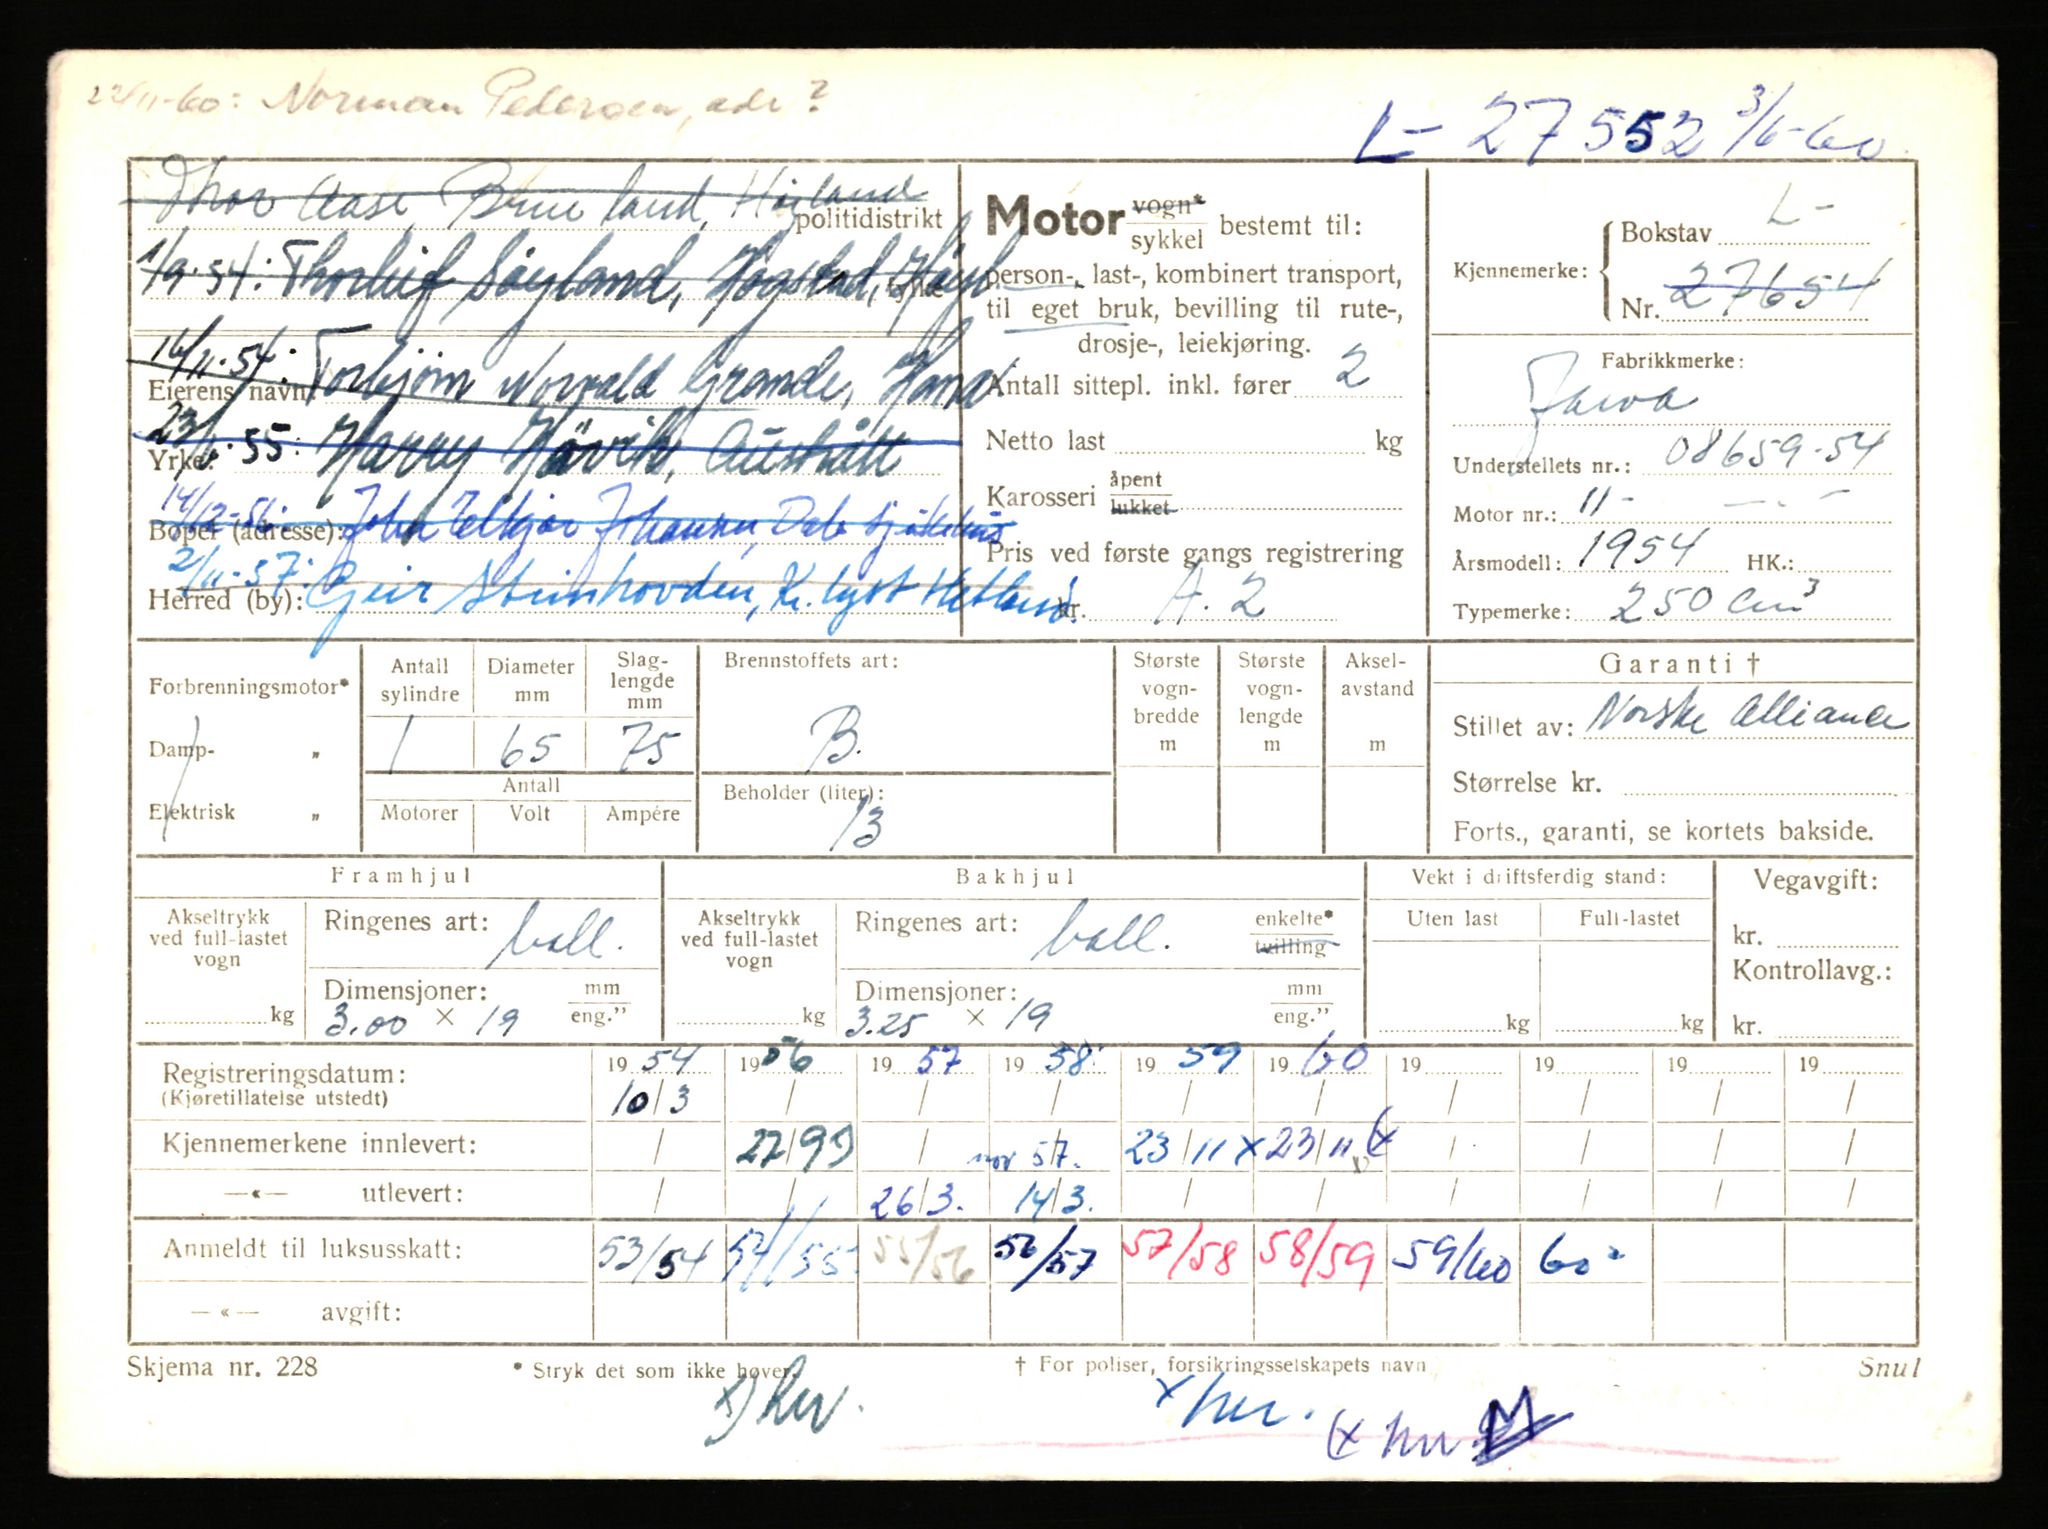 22/11-60: Norman Pedersen, adr?
L- 27552 3/6-60
Thor Aase, Brueland, Høiland
politidistrikt
1/9-54: Thorleif Søyland, Høyland
fylke
16/11-54: Torbjørn Norvald Grande, Hana
Eierens navn:
23/ -55: Harry Høvik, Austrått
Yrke:
14/12-56: John Johansen, Dale sjukehus
Bopel (adresse):
2/11-57: Geir Steinhovden, Kr. lyst Hetland
Herred (by):
Motor vogn* sykkel bestemt til:
person-, last-, kombinert transport,
til eget bruk, bevilling til rute-,
drosje-, leiekjøring.
Antall sittepl. inkl. fører 2
Netto last kg
Karosseri åpent lukket
Pris ved første gangs registrering
kr. A. 2
Kjennemerke: Bokstav L-
Nr. 27654
Fabrikkmerke:
Jawa
Understellets nr.: 08659-54
Motor nr.: 11- — - -
Årsmodell: 1954 HK.:
Typemerke: 250 cm³
Forbrenningsmotor*
Damp- „
Elektrisk „
Antall sylindre 1
Diameter mm 65
Slaglengde mm 75
Antall
Motorer Volt Ampére
Brennstoffets art:
B.
Beholder (liter):
13
Største vognbredde m
Største vognlengde m
Akselavstand m
Garanti †
Stillet av: Norske Alliance
Størrelse kr.
Forts., garanti, se kortets bakside.
Framhjul
Akseltrykk ved full-lastet vogn
kg
Ringenes art: ball.
Dimensjoner: mm eng.”
3.00 × 19
Bakhjul
Akseltrykk ved full-lastet vogn
kg
Ringenes art: ball. enkelte* tvilling
Dimensjoner: mm eng.”
3.25 × 19
Vekt i driftsferdig stand:
Uten last Full-lastet
kg kg
Vegavgift:
kr.
Kontrollavg.:
kr.
Registreringsdatum: 1954 1956 1957 1958 1959 1960 19 19 19 19
(Kjøretillatelse utstedt) 10/3 / / / / / / / / /
Kjennemerkene innlevert: / 27/9 / nov 57. 23/11 x 23/11 (x / / / /
—«— utlevert: / / 26/3. 14/3. / / / / / /
Anmeldt til luksusskatt: 53/54 54/55 55/56 56/57 57/58 58/59 59/60 60-
—«— avgift:
Skjema nr. 228 * Stryk det som ikke høver. † For poliser, forsikringsselskapets navn. Snul
x) her. x her. (x her.